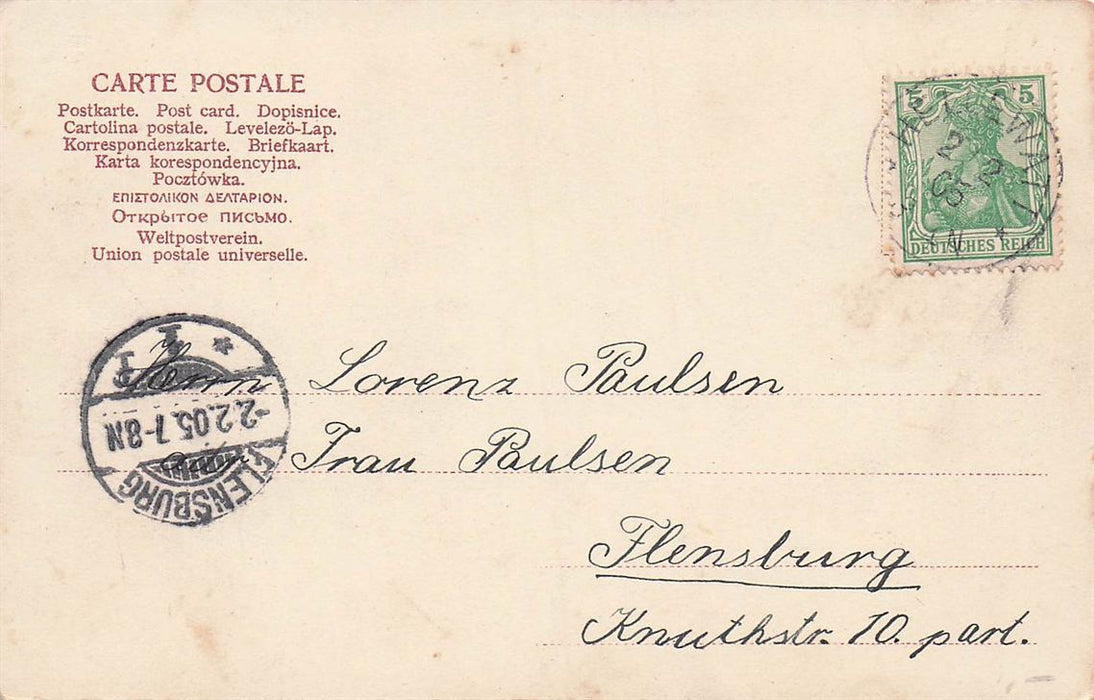 CARTE POSTALE
Postkarte. Post card. Dopisnice.
Cartolina postale. Levelezö-Lap.
Korrespondenzkarte. Briefkaart.
Karta korespondencyjna.
Pocztówka.
ΕΠΙΣΤΟΛΙΚΟΝ ΔΕΛΤΑΡΙΟΝ.
Открытое письмо.
Weltpostverein.
Union postale universelle.
5 5
DEUTSCHES REICH
2 2
05
N
FLENSBURG
2.2.05.7-8N
Herrn Lorenz Paulsen
Frau Paulsen
Flensburg
Knuthstr. 10. part.